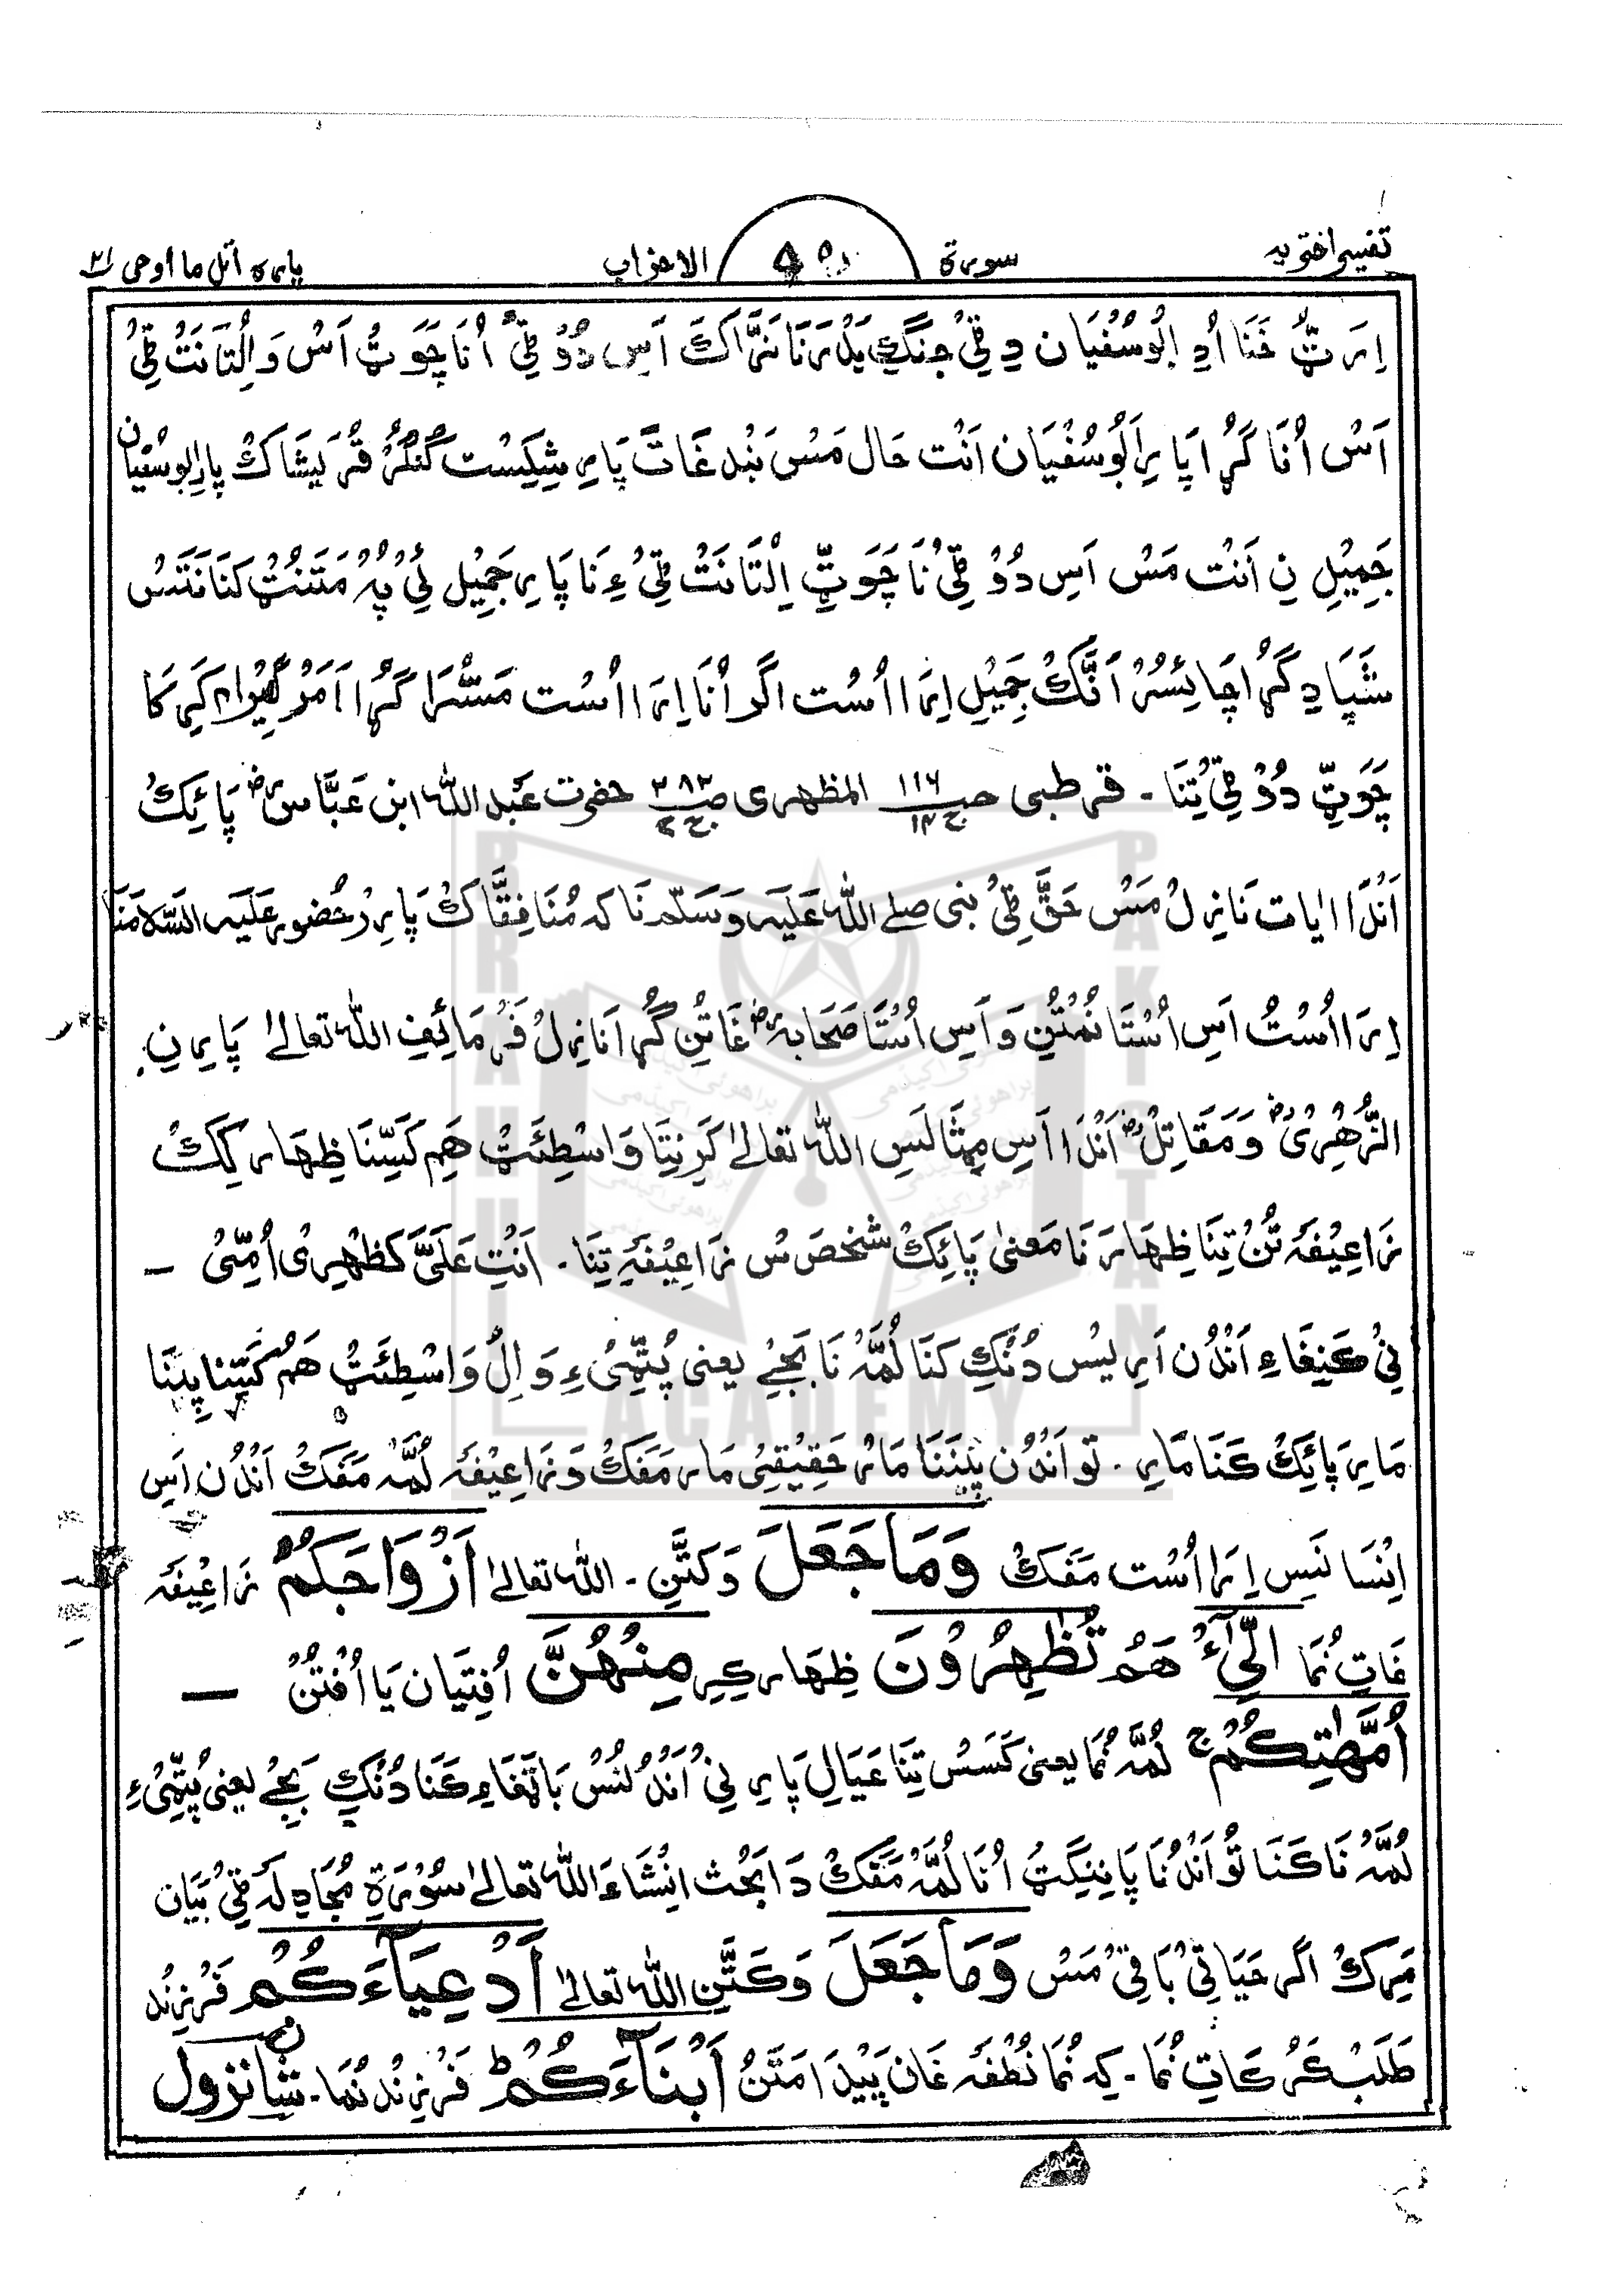 تفسیر اختریہ سورة الاحزاب پارہ اتل ما أوحی ۲۱
اِرَٹّ خَنَا اُدِ ابُوسُفْیَان دِ ٹِیْ جنگِ بَدْرَنَا نَرَّاکَ اَسِ دُوْ ٹِیْ اُنَا چَوَٹ اَسْ وَ اِلْتَانَتْ ٹِیْ
اَسْ اُنَا گُڑَا پَارِ اَبُوسُفْیَان اَنْت حَال مَسْ بَنْدغَاتَ پَارِ شِکِسْت کُنْگُرْ قُرَیشَاکْ پَارِ ابوسُفْیَان
جَمِیْلِ نِ اَنْت مَسْ اَسِ دُوْ ٹِیْ نَا چَوَٹِّ اِلْتَانَتْ ٹِیْ ءِ نَا پَارِ جَمِیْل ئِیْ پُہْ مَتَنُٹ کَنَا نَتَسْ
شَپَادِ گُڑَا چَائِسُرْ اَنَّکْ جَمِیْلِ اِرَا اُسْت اگَر اُنَا اِرَا اُسْت مَسُّرَا گُڑَا اَمَرْ گِیْرام کَرِ کَا
چَوَٹِّ دُوْ ٹِیْ تِنَا ۔ قرطبی صـ ۱۱۶ ج ۱۴ المظہری صـ ۲۸۳ ج ۷ حضرت عَبد اللہ ابن عَبَّاسؓ پَائِکْ
اَنْدَا اٰیات نَازِلْ مَسْ حَقَّ ٹِیْ نبی صلے اللہ عَلَیہ وَسَلّم نَا کہ مُنَافِقَّاکْ پَارِرْ حُضور عَلَیہ السَّلَامنَا
اِرَا اُسْتُ اَسِ اُسْتَا نُمْتُنِ وَ اَسِ اُسْتَا صَحَابہؓ غَاتُنِ گُڑَا نَازِلْ فَرْمَائِفِ اللہ تعالےٰ پَارِ نِ
الزُّھْرِیْؓ وَمَقَاتِلْؓ اَنْدَا اَسِ مِثَالَسِ اللہ تعالےٰ کَرِنِیَا وَاسْطِئَٹْ ھَم کَسِّنَا ظِھَار کِکْ
زَاعِیْفَہ تُنْ تِنَا ظِھَارَ نَا مَعنیٰ پَائِکْ شخصَس زَاعِیْفَہِ تِنَا ۔ اَنْتِ عَلَیَّ کَظَھْرِی اُمِّیْ ۔
نِیْ کَنِغَاءِ اَنْدُن اَرِیسْ دُنْکِ کَنَا لُمَّہ نَا بَجِے یعنی پُٹّیْ ءِ وَ اِلْ وَاسْطِئَٹْ ھَمْ کَسِّنَا پِنَنَا
مَارِ پَائِکْ کَنَا مَارِ ۔ تو اَنْدُن پِنَنَا مَارْ حَقِیْقِیْ مَار مَفَکْ وَزَاعِیْفَہ لُمَّہ مَفَکْ اَنْدُن اَسِ
اِنْسَانَسِ اِرَا اُسْت مَفَکْ وَمَا جَعَلَ وَ کَتَّنِ ۔ اللہ تعالےٰ اَزْوَاجَکُمْ زَاعِیْفَہ
غَاتِ نُمَا الّٰٓئِیْ ھَمْ تُظٰھِرُوْنَ ظِھَار کِرِ مِنْھُنَّ اُفِتَیَان یَا اُفْتُنْ ۔
اُمَّھٰتِکُمْ ج لُمَّہ نُمَا یعنی کَسَسْ تِنَا عَیَالِ پَارِ نِیْ اَنْدُنُسْ بَا تَغَاءِ کَنَا دُنْکِ بَجِے یعنی پُٹّیْ ءِ
لُمَّہ نَا کَنَا تُوْ اَنْدُنَا پَانِنِگَٹ اُنَا لُمَّہْ مَفَکْ دَا بَحْث اِنْشَاءَ اللہ تعالےٰ سُوْرَةِ مُجَادِلَہ ٹِیْ بَیَان
مَرِکْ اگر حَیَاتِیْ بَاقِیْ مَسْ وَمَا جَعَلَ وَ کَتَّنِ اللہ تعالےٰ اَدْعِیَآءَکُمْ فَرْزِنْد
طَلَبْ کَرْ کَاتِ نُمَا ۔ کِہ نُمَا نُطْفَہ غَان پَیْدَا مَتَنُ اَبْنَآءَکُمْ ط فَرْزِنْد نُمَا ۔ شان نزول